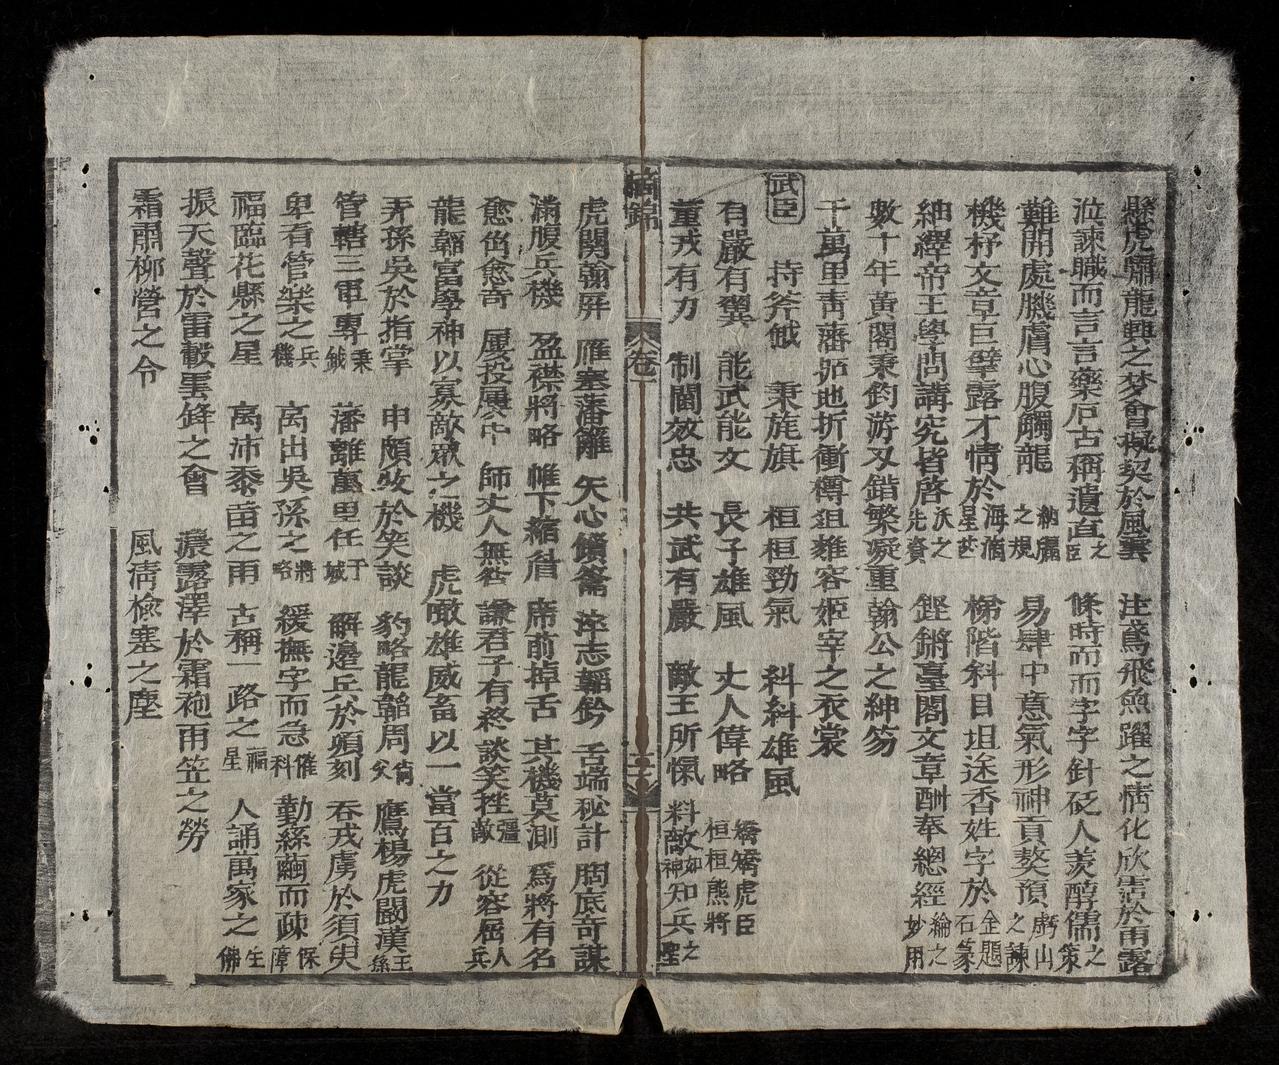 縣虎嘯龍興之梦會擬契於風雲 注鳶飛魚躍之情化欣霑於雨露
泣諫職而言言藥石古稱遺直之臣 條時而而字字針砭人羡醇儒之策
難開處臙膚心腹觸龍納牖之規 易肆中意氣形神貢獒預房山之諫
機杼文章巨擘露才情於海滴星芒 梯階科目坦途香姓字於金題石篆
紬繹帝王學問講究皆啓沃之先資 鏗鏘臺閣文章酬奉總經綸之妙用
數十年黃閣秉鈞游刃錯繁凝重翰公之紳笏
千萬里靑藩茆地折衝樽俎雍容姬宰之衣裳
武臣 持斧鉞 秉旄旗 桓桓勁氣 糾糾雄風
有嚴有翼 能武能文 長子雄風 丈人偉略 矯矯虎臣 桓桓熊將
董戎有力 制閫效忠 共武有嚴 敵王所愾 料敵如神 知兵之聖
摘錦 卷一
虎關翰屛 雁塞藩籬 矢心鎖鑰 淬志韜鈐 舌端秘計 胸底奇謀
滿腹兵機 盈襟將略 帷下縮眉 席前掉舌 其機莫測 爲將有名
愈出愈奇 屢投屢中 師丈人無咎 謙君子有終 談笑挫彊敵 從容屈人兵
龍韜富學神以寡敵眾之機 虎瞰雄威畜以一當百之力
弄孫吳於指掌 申頗牧於笑談 豹略龍韜周尙父 鷹楊虎闘漢王孫
管轄三軍專秉鉞 藩離萬里任于城 觧邊丘於頃刻 吞戎虜於須臾
卑看管樂之兵機 高出吳孫之將略 緩撫字而急催科 勤絲繭而疎保障
福臨花縣之星 高沛黍苗之雨 古稱一路之福星 人誦萬家之生佛
振天聲於雷轂星鋒之會 濃露澤於霜袍雨笠之勞
霜肅柳營之令 風淸檢塞之塵